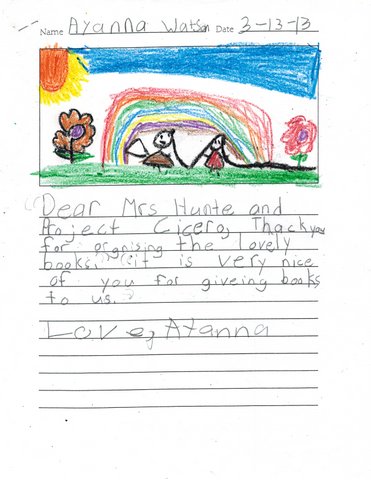 Name Ayanna Watson Date 3-13-13
Dear Mrs Hunte and
Project Cicero, Thack you
for organising the lovely
books. it is very nice
of you for giveing books
to us.
Love, Ayanna